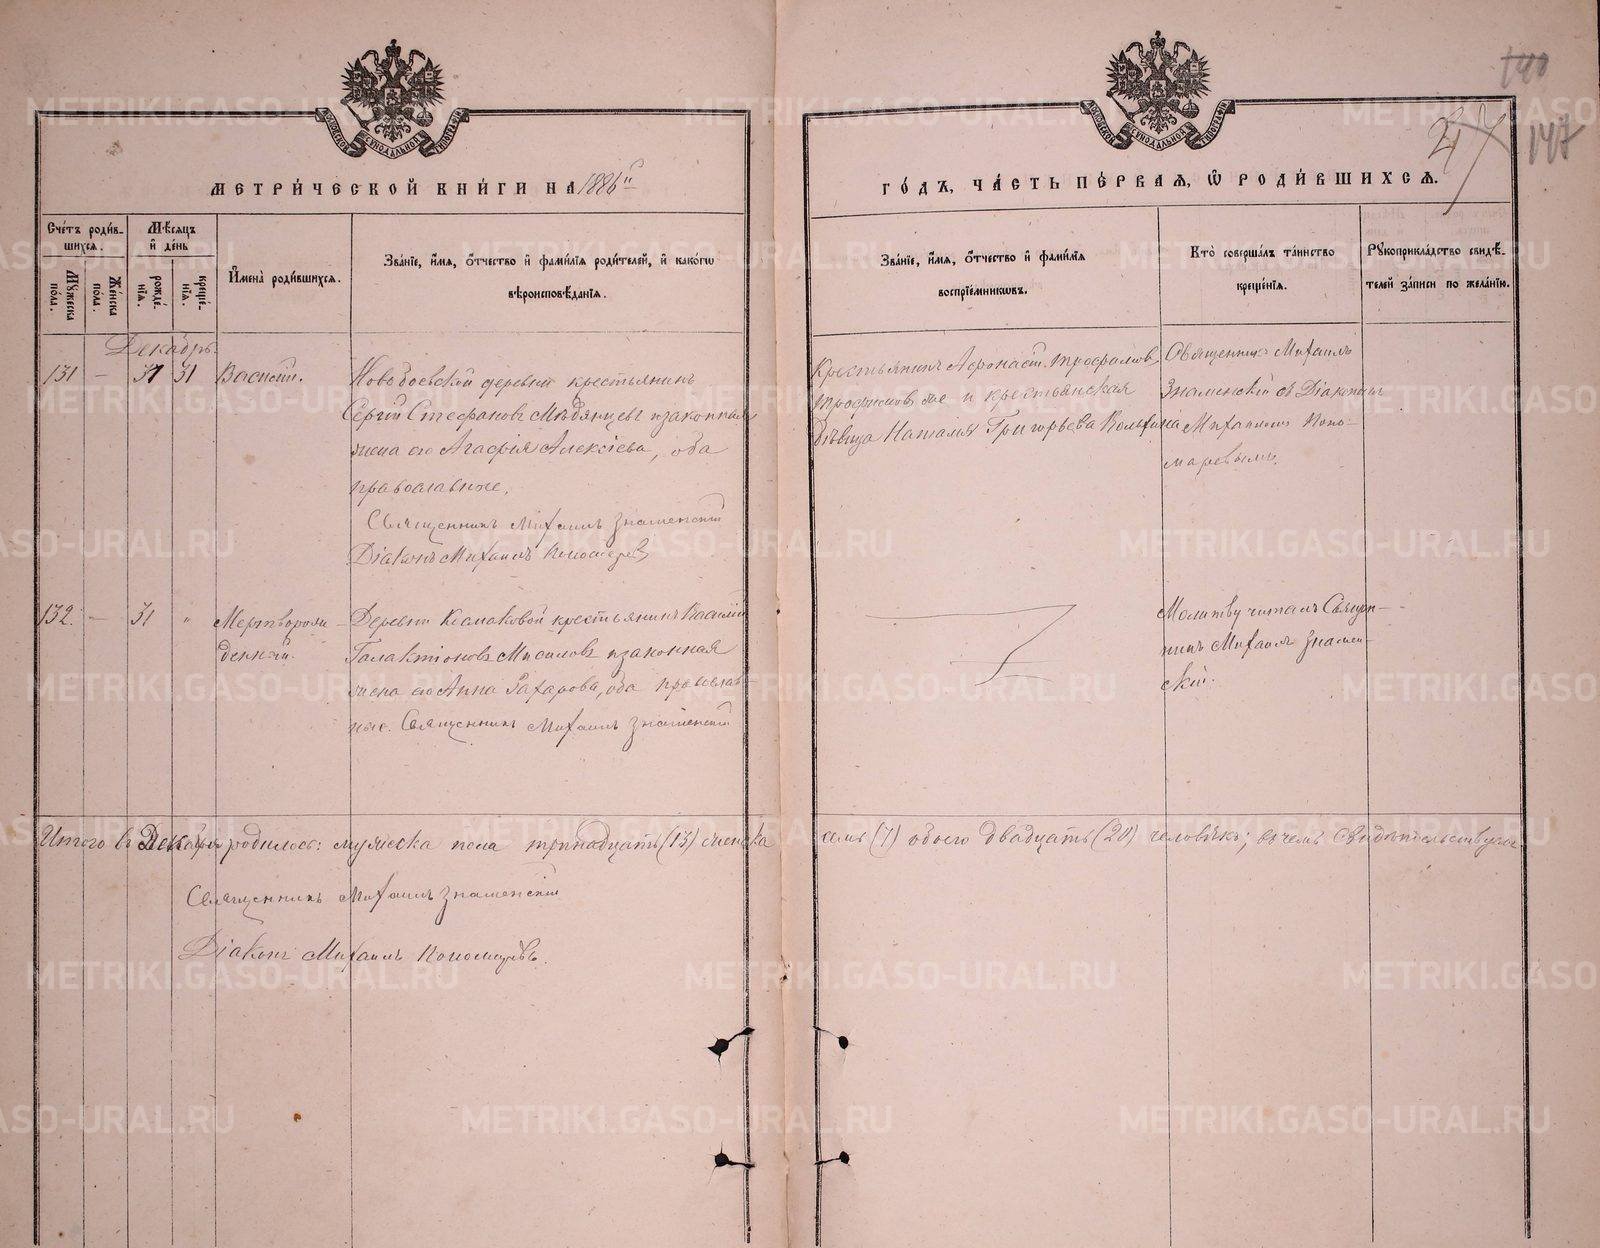 140
147
СѴНОДАЛЬНОЙ
ТИПОГРАФІИ
МЕТРИ́ЧЕСКОЙ КНИ́ГИ НА 1886й
ГО́ДЪ, ЧА́СТЬ ПЕ́РВАЯ, Ѡ РОДИ́ВШИХСЯ.
Сче́тъ роди́в-
шихся.
Мꙋ́жеска по́ла.
Же́нска по́ла.
Мѣ́сяцъ
и де́нь
рожде́нїя.
креще́нїя.
И҆мена̀ роди́вшихся.
Зва́нїе, и҆́мя, ѻ҆́тчество и҆ фами́лїя роди́телей, и҆ како́гѡ
вѣроисповѣ́данїя.
Зва́нїе, и҆́мя, ѻ҆́тчество и҆ фами́лїя
воспрїе́мникѡвъ.
Кто̀ соверша́лъ та́инство
креще́нїя.
Рꙋкоприкла́дство свидѣ́-
телей за́писи по жела́нїю.
Декабрь.
131 — 31 31 Василій.
Новобоевской деревни крестьянинъ
Сергій Стефановъ и законная
жена его Агафия Алексіева, оба
православные.
Священникъ Михаилъ Знаменскій
Діаконъ Михаилъ Пономаревъ
Крестьянинъ Афонасій Трофимовъ
и крестьянская
дѣвица Наталья Григорьева
Священникъ Михаилъ
Знаменскій съ Діакономъ
Михаиломъ Поно-
маревымъ.
132. — 31 " Мертворож-
денный.
Деревни Колмаковой крестьянинъ Василій
Галактіоновъ и законная
жена его Анна Захарова, оба православ-
ные. Священникъ Михаилъ Знаменскій
Молитву читалъ Священ-
никъ Михаилъ Знамен-
скій.
Итого въ Декабрѣ родилось: мужеска пола тринадцать (13) женска
семь (7) обоего двадцать (20) человѣкъ; въ чемъ свидѣтельствуемъ
Священникъ Михаилъ Знаменскій
Діаконъ Михаилъ Пономаревъ.
METRIKI.GASO-URAL.RU